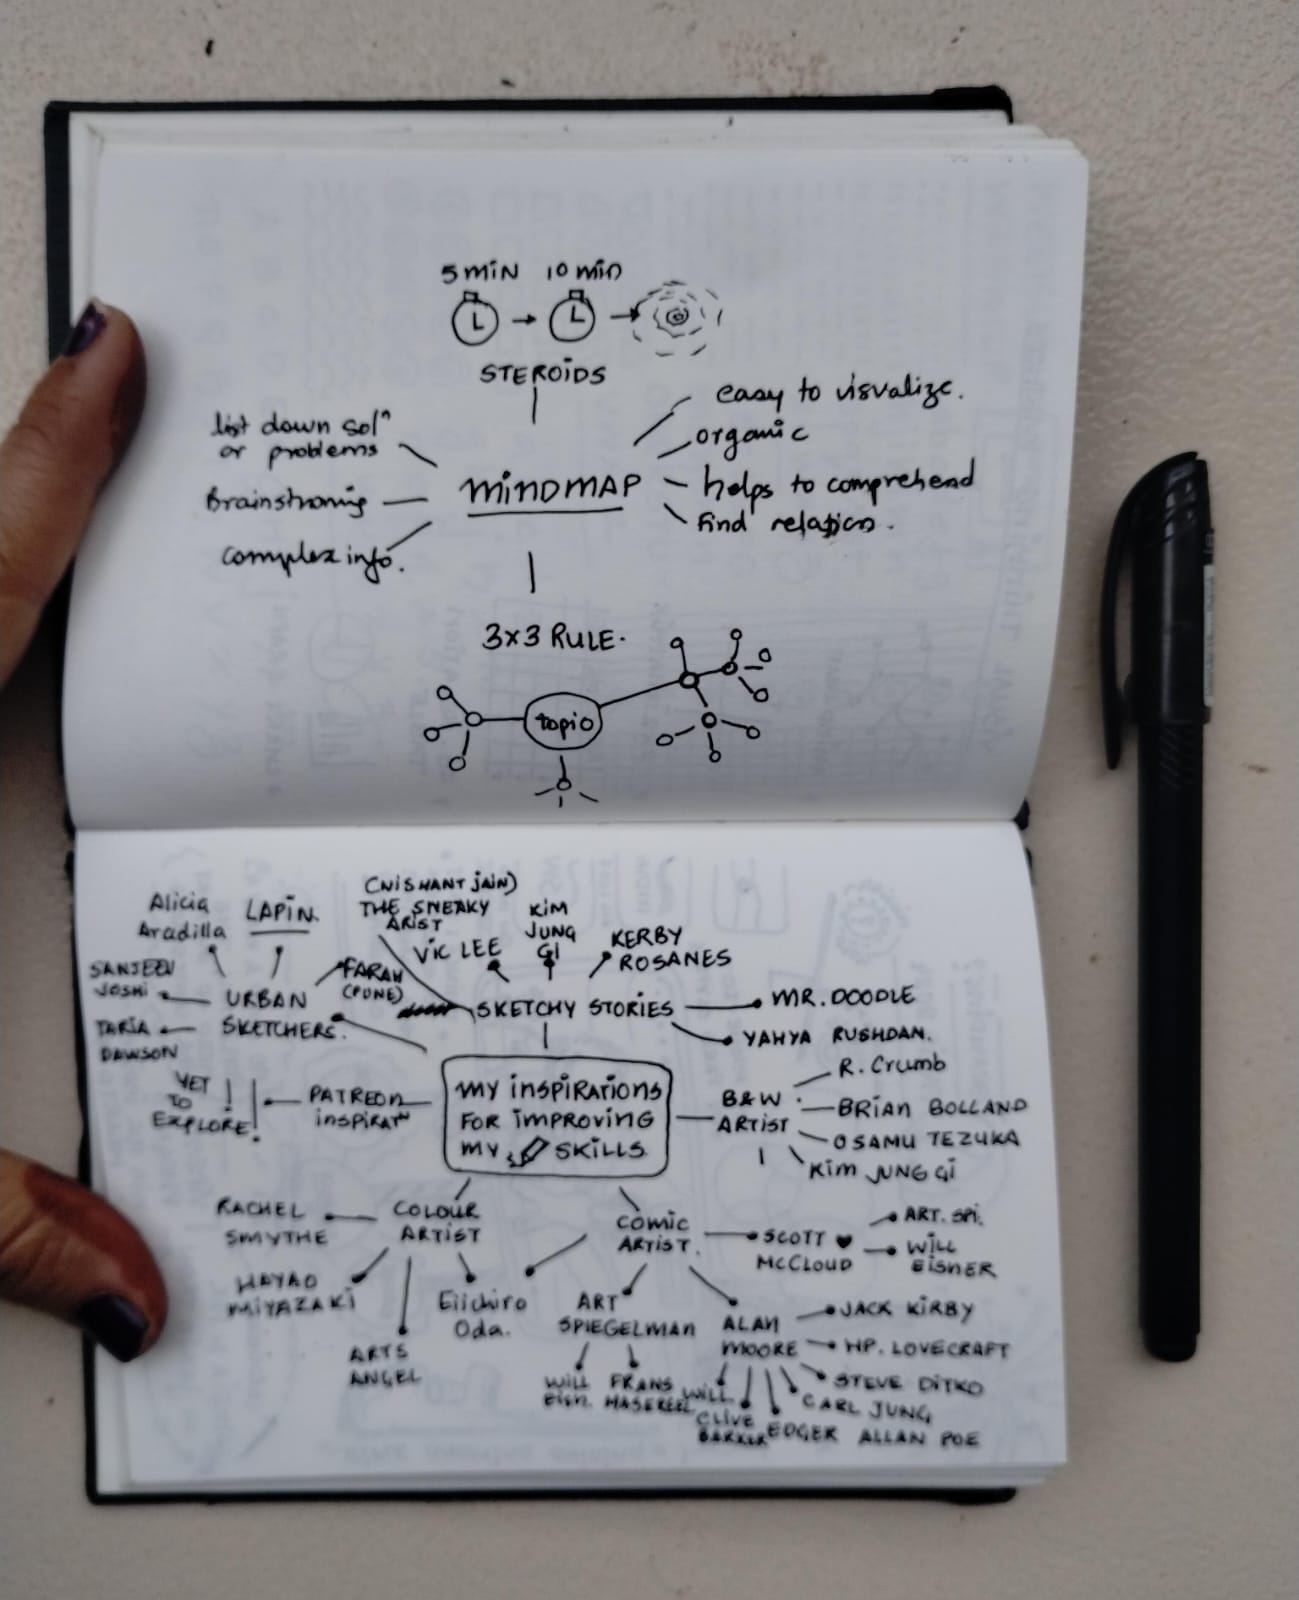 5 MIN 10 min
STEROIDS
list down solⁿ
or problems
Brainstroming
complex info.
MINDMAP
easy to visualize.
organic
helps to comprehend
Find relation.
3x3 RULE.
topic
(NISHANT JAIN)
THE SNEAKY
ARIST
Alicia
Aradilla
LAPIN.
VIC LEE
KIM
JUNG
GI
KERBY
ROSANES
SANJEEV
JOSHI
FARAH
(PUNE)
URBAN
SKETCHERS.
TARIA
DAWSON
SKETCHY STORIES
MR. DOODLE
YAHYA RUSHDAN.
YET
TO
EXPLORE!
PATREON
INSPIRATⁿ
MY INSPIRATIONS
FOR IMPROVING
MY SKILLS
B&W
ARTIST
R. Crumb
BRIAN BOLLAND
OSAMU TEZUKA
KIM JUNG GI
RACHEL
SMYTHE
COLOUR
ARTIST
HAYAO
MIYAZAKI
ARTS
ANGEL
Eiichiro
Oda.
COMIC
ARTIST.
SCOTT
MCCLOUD
ART. SPI.
WILL
EISNER
ART
SPIEGELMAN
WILL
EISN.
FRANS
MASEREEL
ALAN
MOORE
JACK KIRBY
HP. LOVECRAFT
STEVE DITKO
CARL JUNG
EDGER ALLAN POE
CLIVE
BARKER
WILL